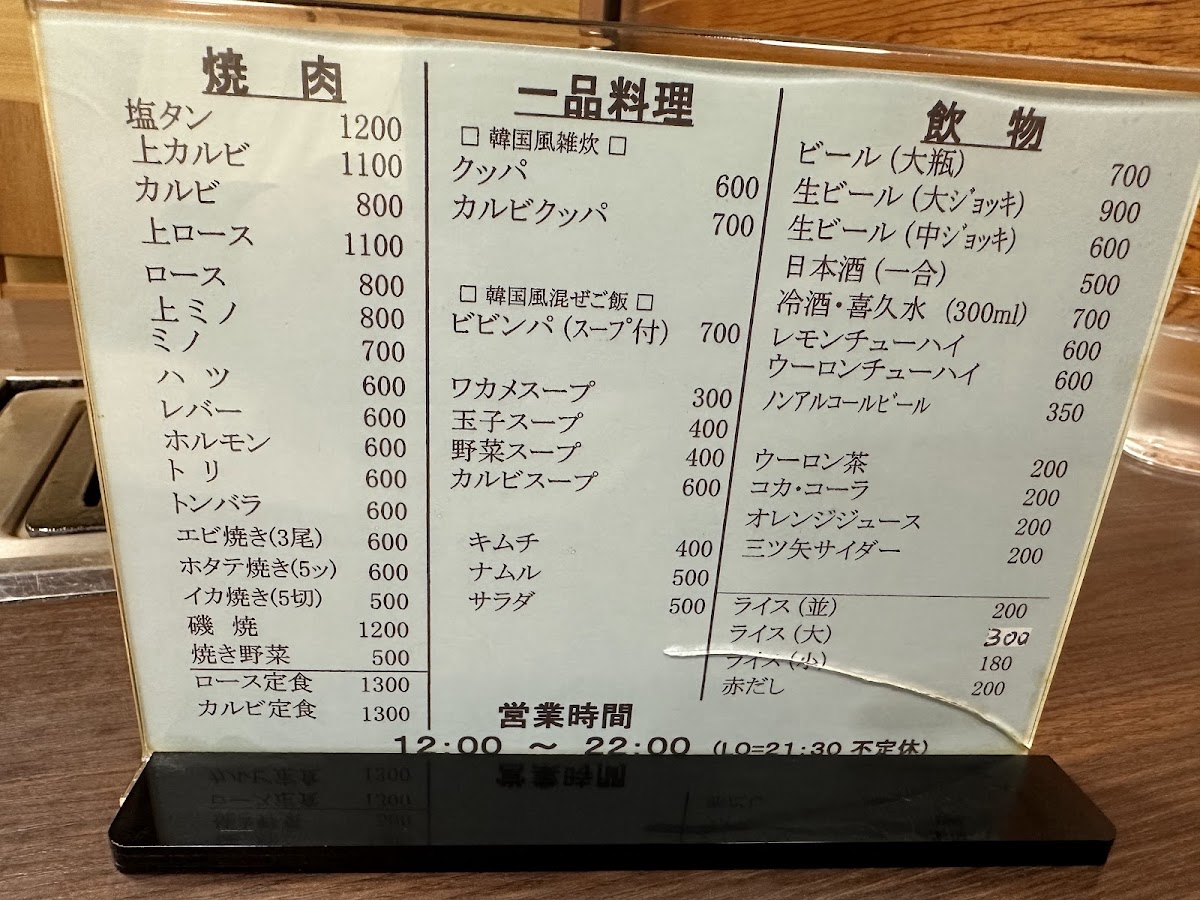 焼 肉
塩タン 1200
上カルビ 1100
カルビ 800
上ロース 1100
ロース 800
上ミノ 800
ミノ 700
ハ ツ 600
レバー 600
ホルモン 600
ト リ 600
トンバラ 600
エビ焼き(3尾) 600
ホタテ焼き(5ッ) 600
イカ焼き(5切) 500
磯 焼 1200
焼き野菜 500
ロース定食 1300
カルビ定食 1300
一品料理
□ 韓国風雑炊 □
クッパ 600
カルビクッパ 700
□ 韓国風混ぜご飯 □
ビビンパ (スープ付) 700
ワカメスープ 300
玉子スープ 400
野菜スープ 400
カルビスープ 600
キムチ 400
ナムル 500
サラダ 500
飲 物
ビール (大瓶) 700
生ビール (大ジョッキ) 900
生ビール (中ジョッキ) 600
日本酒 (一合) 500
冷酒・喜久水 (300ml) 700
レモンチューハイ 600
ウーロンチューハイ 600
ノンアルコールビール 350
ウーロン茶 200
コカ・コーラ 200
オレンジジュース 200
三ツ矢サイダー 200
ライス (並) 200
ライス (大) 300
ライス (小) 180
赤だし 200
営業時間
12:00 ～ 22:00 (LO=21:30 不定休)